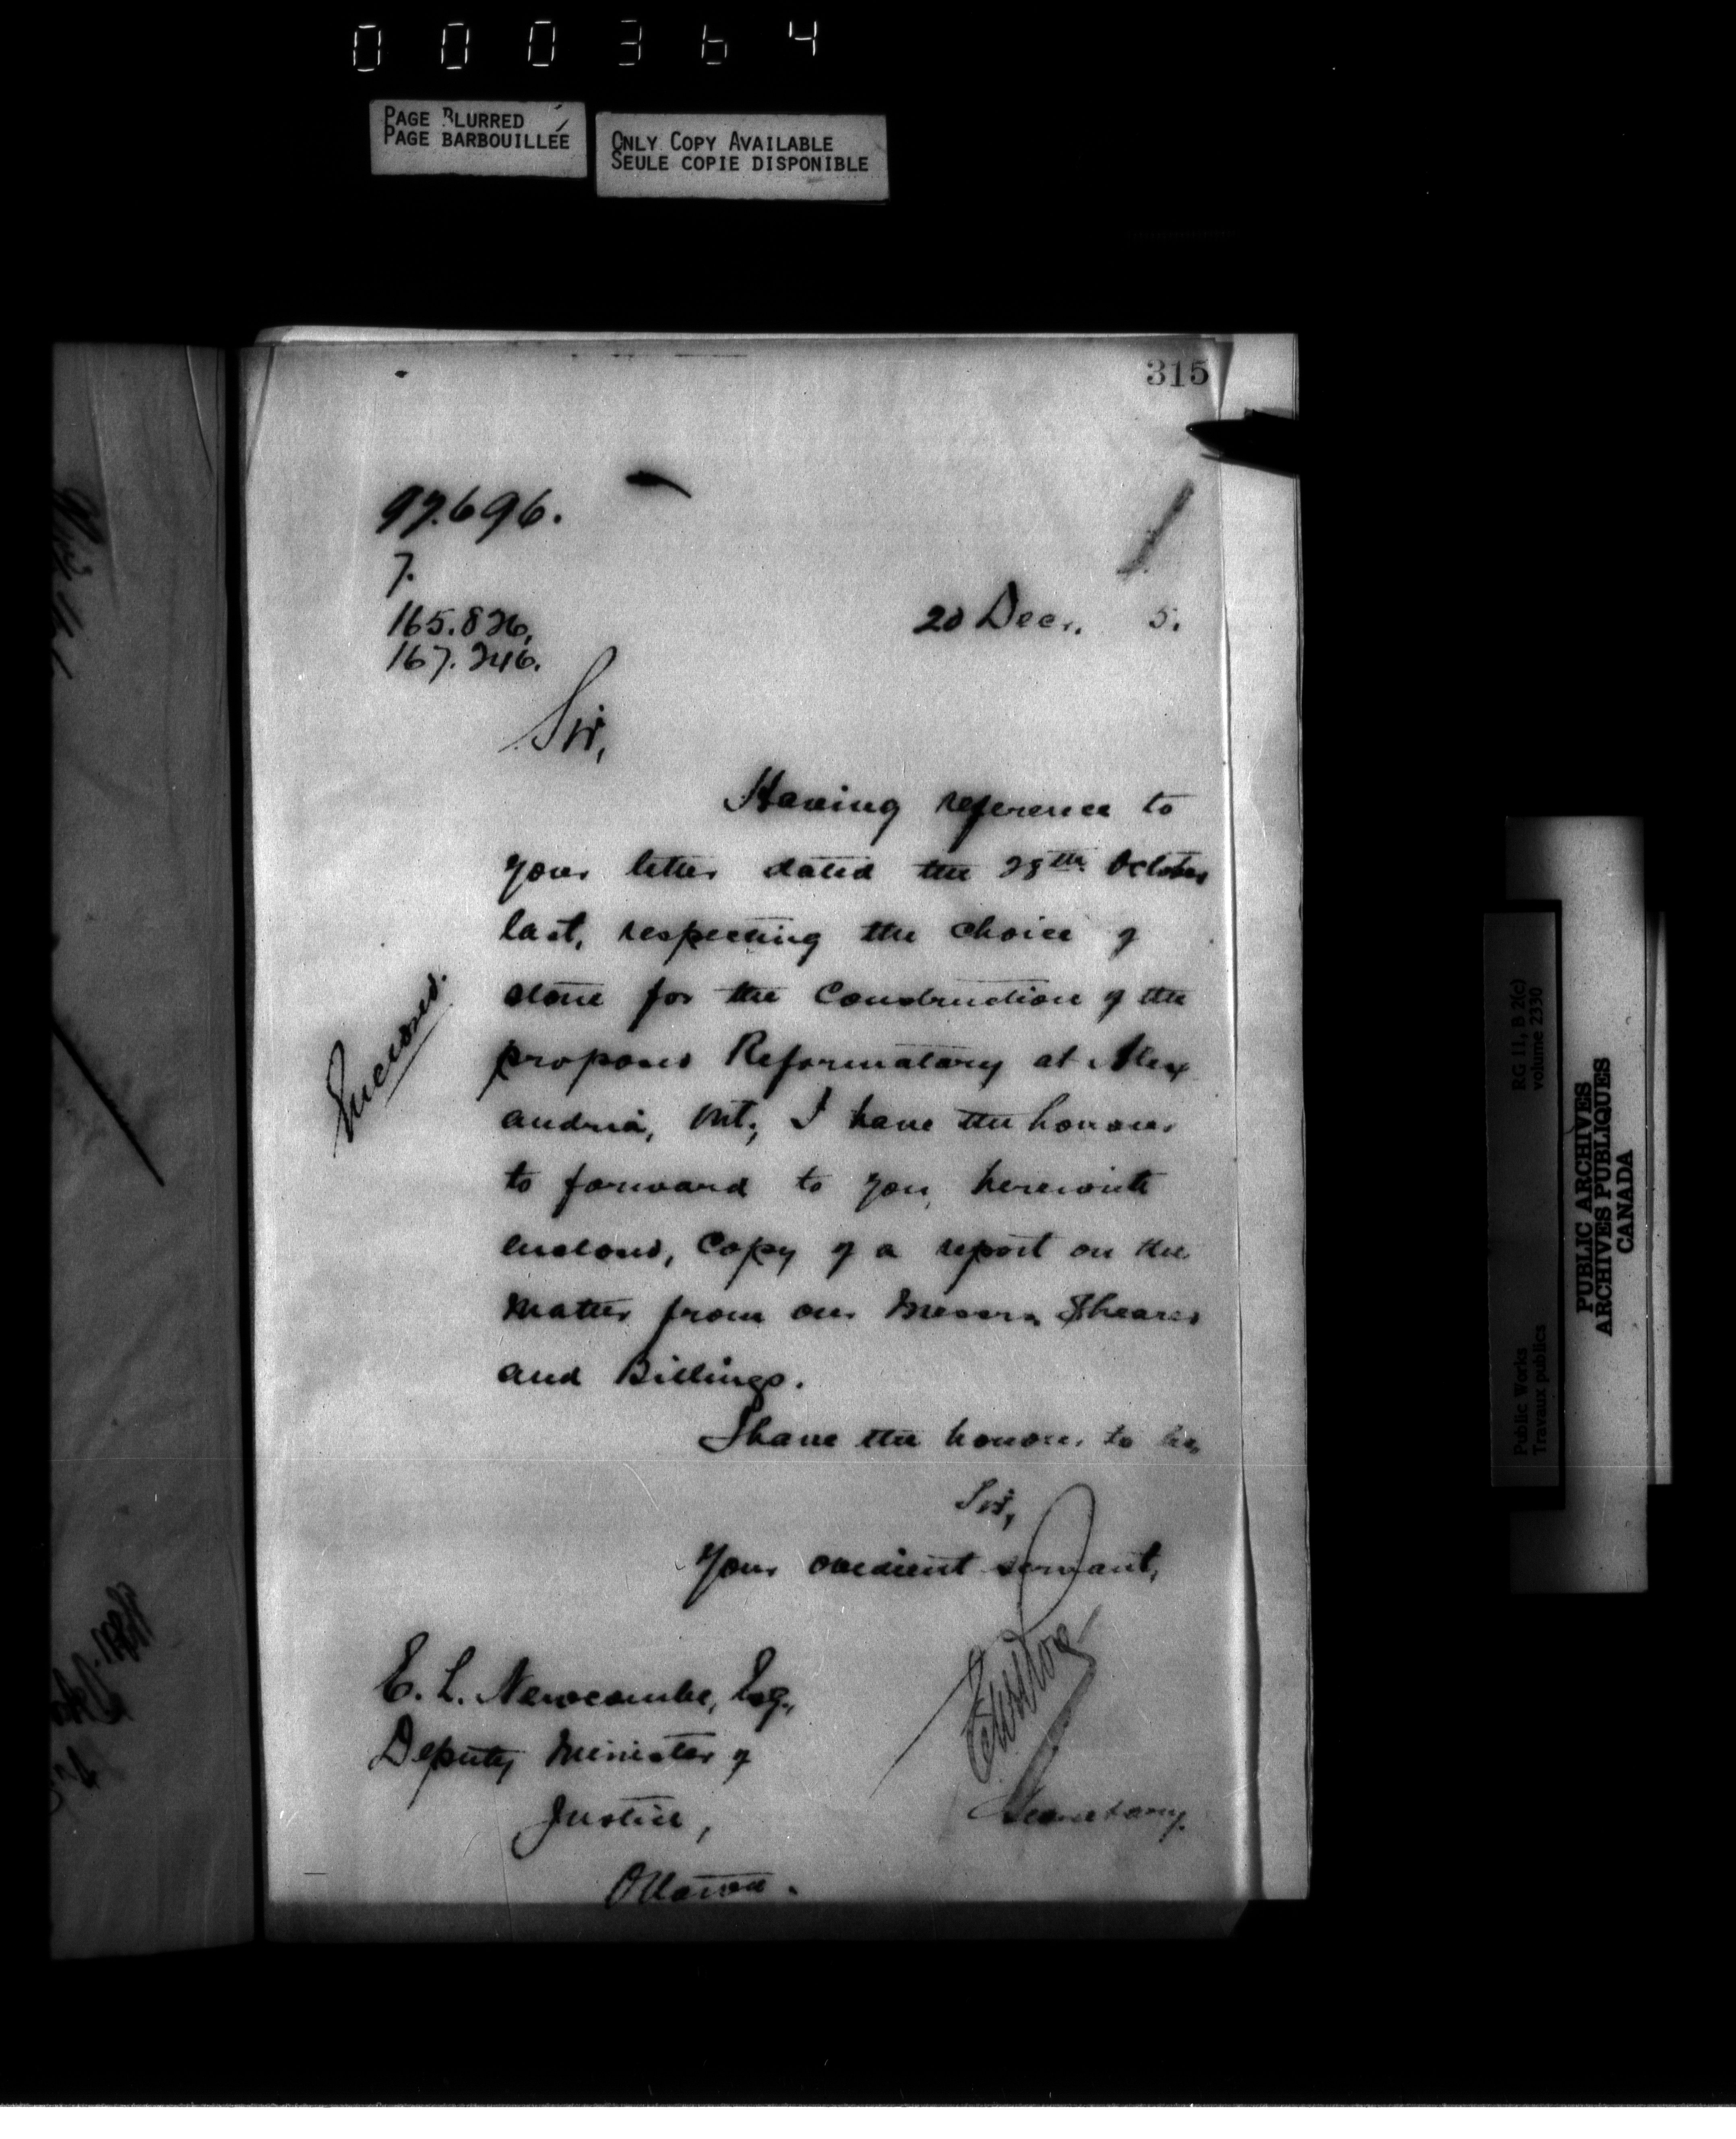 000364
PAGE BLURRED
PAGE BARBOUILLÉE
ONLY COPY AVAILABLE
SEULE COPIE DISPONIBLE
315
97.696.
7.
165.826,
167.246.
20 Decr. 5.
Sir,
Having reference to
your letter dated the 28th October
last, respecting the choice of
stone for the Construction of the
proposed Reformatory at Alex
andria, Ont., I have the honour
to forward to you, herewith
enclosed, Copy of a report on the
matter from our Messrs Sheard
and Billings.
I have the honour to be,
Sir,
Your obedient servant,
Enclosed.
E. L. Newcombe, Esq.,
Deputy Minister of
Justice,
Ottawa.
Secretary.
RG 11, B 2(c)
volume 2330
Public Works
Travaux publics
PUBLIC ARCHIVES
ARCHIVES PUBLIQUES
CANADA